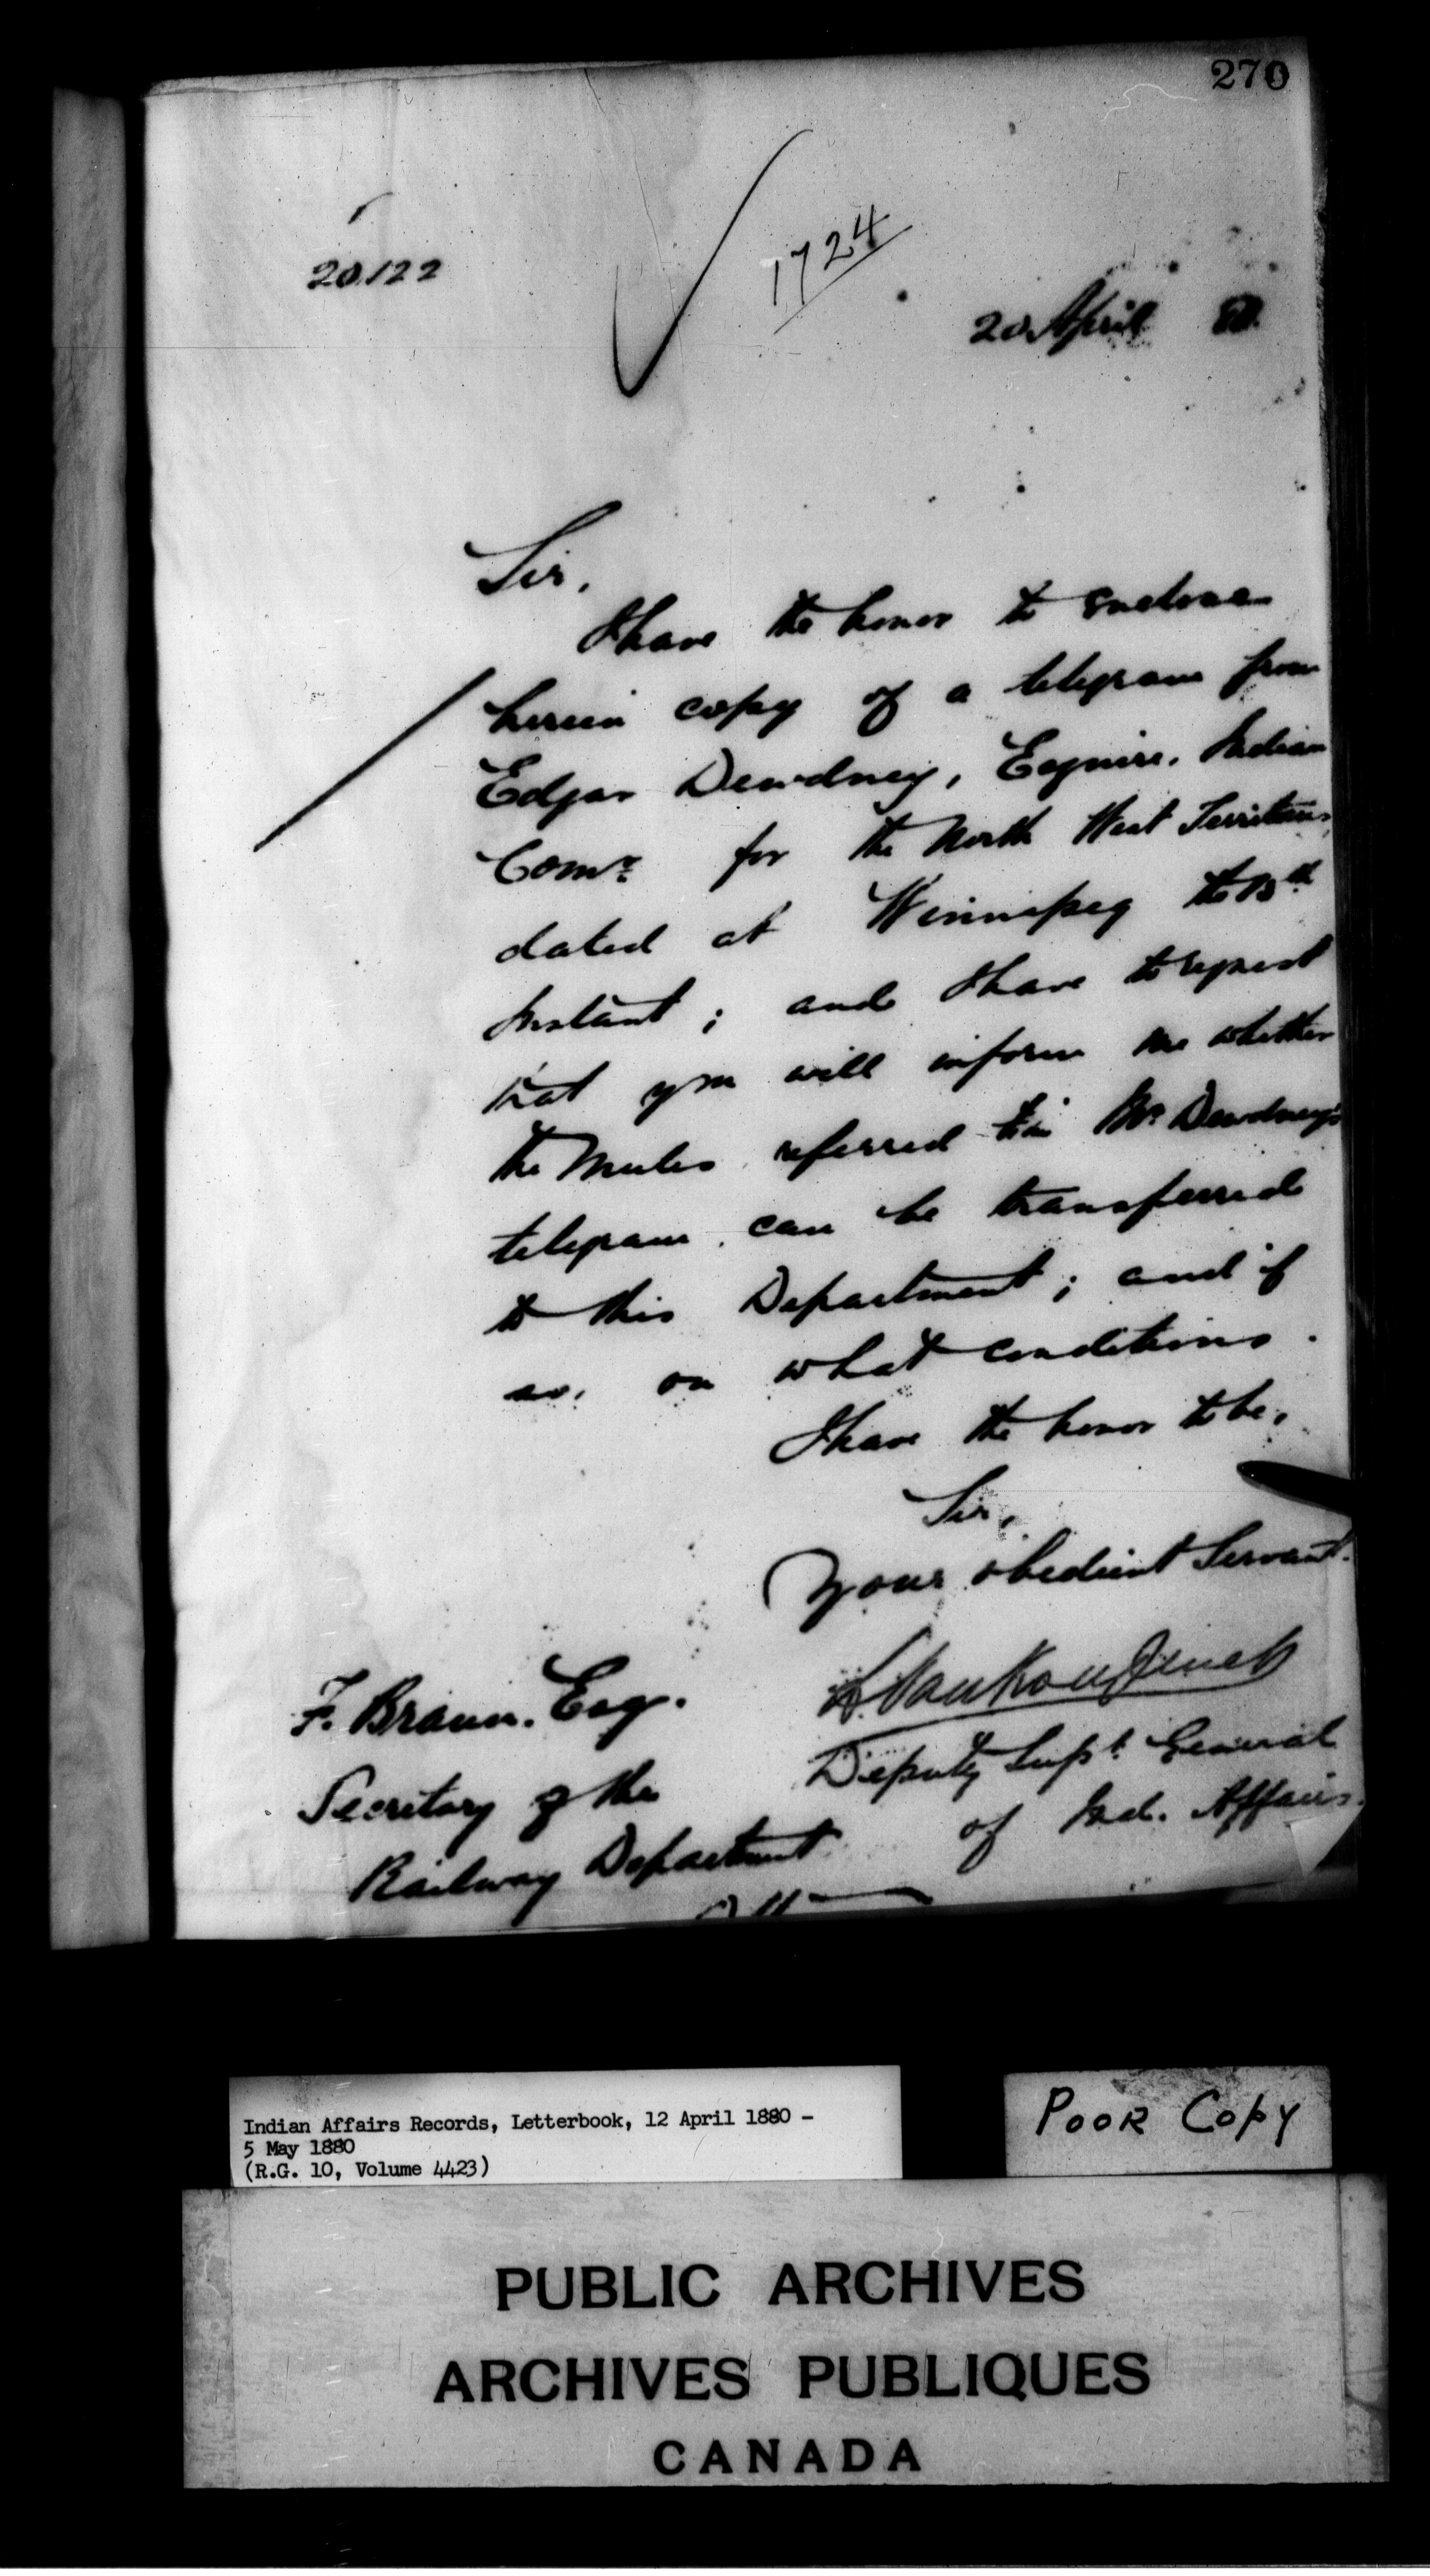 270
20122
1724
20 April 80.
Sir,
I have the honor to enclose
herein copy of a telegram from
Edgar Dewdney, Esquire, Indian
Comr. for the North West Territories
dated at Winnipeg the th
Instant; and I have to request
that you will inform me whether
the Mules referred to in Mr. Dewdney's
telegram, can be transferred
to this Department; and if
so, on what conditions.
I have the honor to be,
Sir,
Your obedient Servant.
L. VanKoughnet
Deputy Supt. General
of Ind. Affairs.
F. Braun, Esq.
Secretary of the
Railway Department
Indian Affairs Records, Letterbook, 12 April 1880 -
5 May 1880
(R.G. 10, Volume 4423)
POOR COPY
PUBLIC ARCHIVES
ARCHIVES PUBLIQUES
CANADA